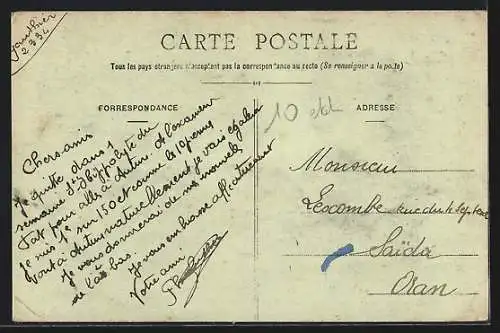 Gauthier
2334
CARTE POSTALE
Tous les pays étrangers n'acceptent pas la correspondance au recto (Se renseigner à la poste)
CORRESPONDANCE
ADRESSE
10
Chers amis
Je quitte dans 1
semaine d'Hyppolyte du
Fait pour aller à Autun. A l'examen
je suis sur 150 et comme les 10 premiers
vont à Autun naturellement je vais également
Je vous donnerai de mes nouvelles
de là bas.
Je vous embrasse affectueusement
Votre ami
Monsieur
Lescombe rue du 4 septembre
Saïda
Oran